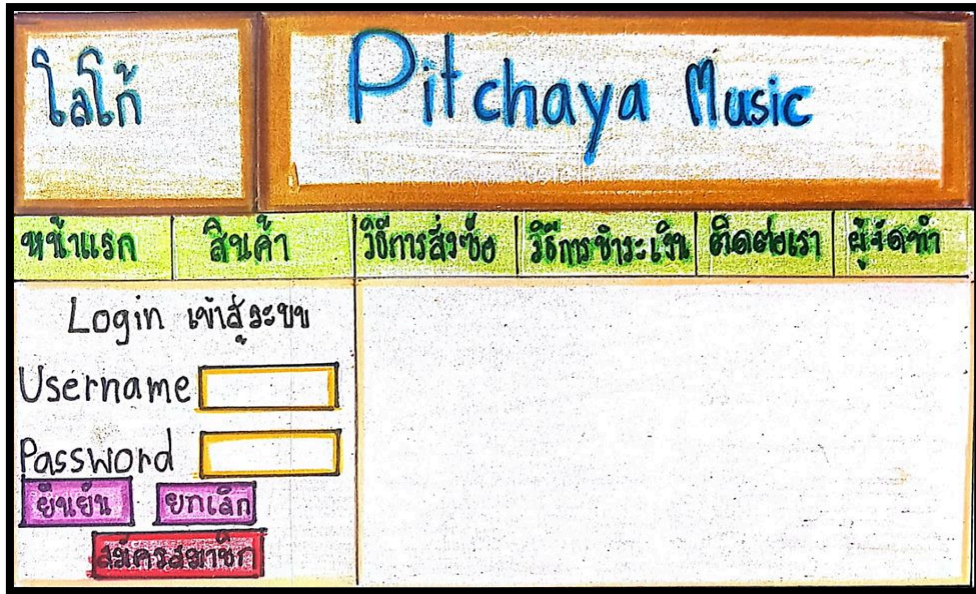 โลโก้
Pitchaya Music
หน้าแรก
สินค้า
วิธีการสั่งซื้อ
วิธีการชำระเงิน
ติดต่อเรา
ผู้จัดทำ
Login เข้าสู่ระบบ
Username
Password
ยืนยัน
ยกเลิก
สมัครสมาชิก